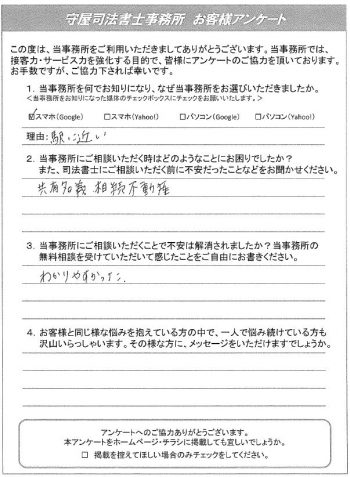 守屋司法書士事務所 お客様アンケート
この度は、当事務所をご利用いただきましてありがとうございます。当事務所では、
接客力・サービス力を強化する目的で、皆様にアンケートのご協力を頂いております。
お手数ですが、ご協力下されば幸いです。
1. 当事務所を何でお知りになり、なぜ当事務所をお選びいただきましたか。
<当事務所をお知りになった媒体のチェックボックスにチェックをお願いいたします。>
☑スマホ(Google) □スマホ(Yahoo!) □パソコン(Google) □パソコン(Yahoo!)
理由: 駅に近い
2. 当事務所にご相談いただく時はどのようなことにお困りでしたか?
また、司法書士にご相談いただく前に不安だったことなどをお聞かせください。
共有名義 相続不動産
3. 当事務所にご相談いただくことで不安は解消されましたか?当事務所の
無料相談を受けていただいて感じたことをご自由にお書きください。
わかりやすかった.
4. お客様と同じ様な悩みを抱えている方の中で、一人で悩み続けている方も
沢山いらっしゃいます。その様な方に、メッセージをいただけますでしょうか。
アンケートへのご協力ありがとうございます。
本アンケートをホームページ・チラシに掲載しても宜しいでしょうか。
□ 掲載を控えてほしい場合のみチェックをしてください。